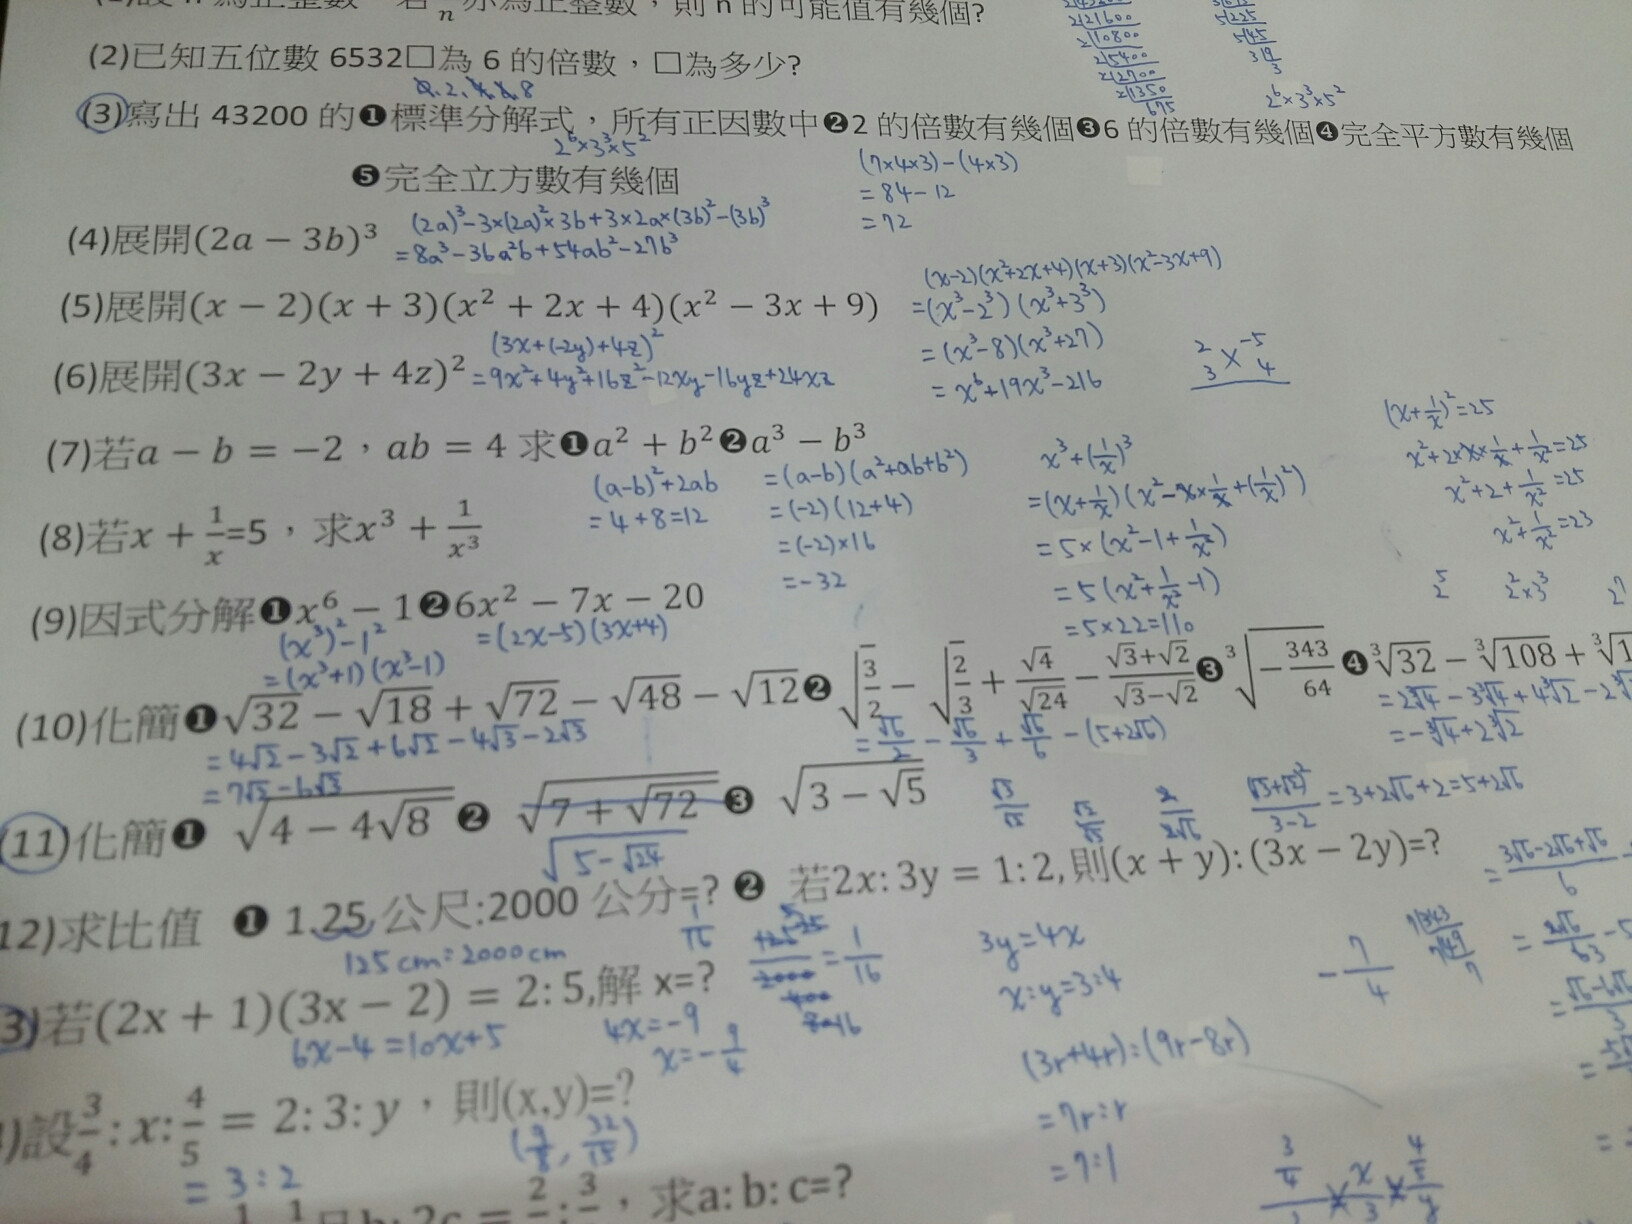 n 為正整數，則 n 的可能值有幾個?
(2)已知五位數 6532□為 6 的倍數，□為多少?
(3)寫出 43200 的❶標準分解式，所有正因數中❷2 的倍數有幾個❸6 的倍數有幾個❹完全平方數有幾個
2⁶×3³×5²
2⁶×3³×5²
❺完全立方數有幾個
(7×4×3)-(4×3)
=84-12
=72
(4)展開(2a − 3b)³
(2a)³-3×(2a)²×3b+3×2a×(3b)²-(3b)³
=8a³-36a²b+54ab²-27b³
(5)展開(x − 2)(x + 3)(x² + 2x + 4)(x² − 3x + 9)
(x-2)(x²+2x+4)(x+3)(x²-3x+9)
=(x³-2³)(x³+3³)
=(x³-8)(x³+27)
=x⁶+19x³-216
(6)展開(3x − 2y + 4z)²
(3x+(-2y)+4z)²
=9x²+4y²+16z²-12xy-16yz+24xz
2 × -5
3 4
(7)若a − b = −2，ab = 4 求❶a² + b²❷a³ − b³
(a-b)²+2ab
=4+8=12
=(a-b)(a²+ab+b²)
=(-2)(12+4)
=(-2)×16
=-32
(8)若x + 1/x=5，求x³ + 1/x³
x³+(1/x)³
=(x+1/x)(x²-x×1/x+(1/x)²)
=5×(x²-1+1/x²)
=5(x²+1/x²-1)
=5×22=110
(x+1/x)²=25
x²+2×x×1/x+1/x²=25
x²+2+1/x²=25
x²+1/x²=23
(9)因式分解❶x⁶ − 1❷6x² − 7x − 20
(x³)²-1²
=(x³+1)(x³-1)
=(2x-5)(3x+4)
(10)化簡❶√32 − √18 + √72 − √48 − √12❷√(3/2) − √(2/3) + √4/√24 − (√3+√2)/(√3−√2)❸³√(−343/64)❹³√32 − ³√108 +
=4√2-3√2+6√2-4√3-2√3
=7√2-6√3
=√6/2-√6/3+√6/6-(5+2√6)
=2³√4-3³√4+4³√2-2
=-³√4+2³√2
(11)化簡❶ √(4 − 4√8) ❷ √(7 + √72) ❸ √(3 − √5)
√(5-√24)
(√3+√2)²/(3-2)=3+2√6+2=5+2√6
12)求比值 ❶ 1.25 公尺:2000 公分=? ❷ 若2x: 3y = 1: 2,則(x + y): (3x − 2y)=?
1/16
125cm:2000cm
=1/16
3y=4x
x:y=3:4
(3r+4r):(9r-8r)
=7r:r
=7:1
-7/4
3)若(2x + 1)(3x − 2) = 2: 5,解 x=?
6x-4=10x+5
4x=-9
x=-9/4
)設3/4: x: 4/5 = 2: 3: y，則(x,y)=?
(9/8, 32/15)
=3:2
，求a: b: c=?